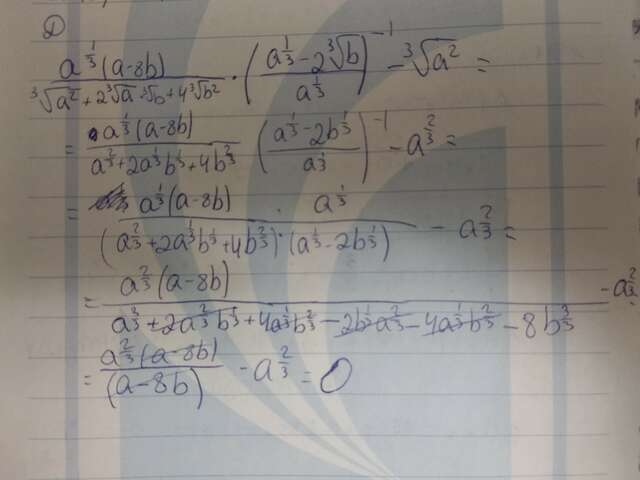 D)
a^{1/3}(a-8b) / (∛a² + 2∛a·∛b + 4∛b²) · ((a^{1/3} - 2∛b) / a^{1/3})^{-1} - ∛a² =
= a^{1/3}(a-8b) / (a^{2/3} + 2a^{1/3}b^{1/3} + 4b^{2/3}) ((a^{1/3} - 2b^{1/3}) / a^{1/3})^{-1} - a^{2/3} =
= a^{1/3}(a-8b) · a^{1/3} / ((a^{2/3} + 2a^{1/3}b^{1/3} + 4b^{2/3}) · (a^{1/3} - 2b^{1/3})) - a^{2/3} =
= a^{2/3}(a-8b) / (a^{3/3} + 2a^{2/3}b^{1/3} + 4a^{1/3}b^{2/3} - 2b^{1/3}a^{2/3} - 4a^{1/3}b^{2/3} - 8b^{3/3}) - a^{2/3} =
= a^{2/3}(a-8b) / (a-8b) - a^{2/3} = 0